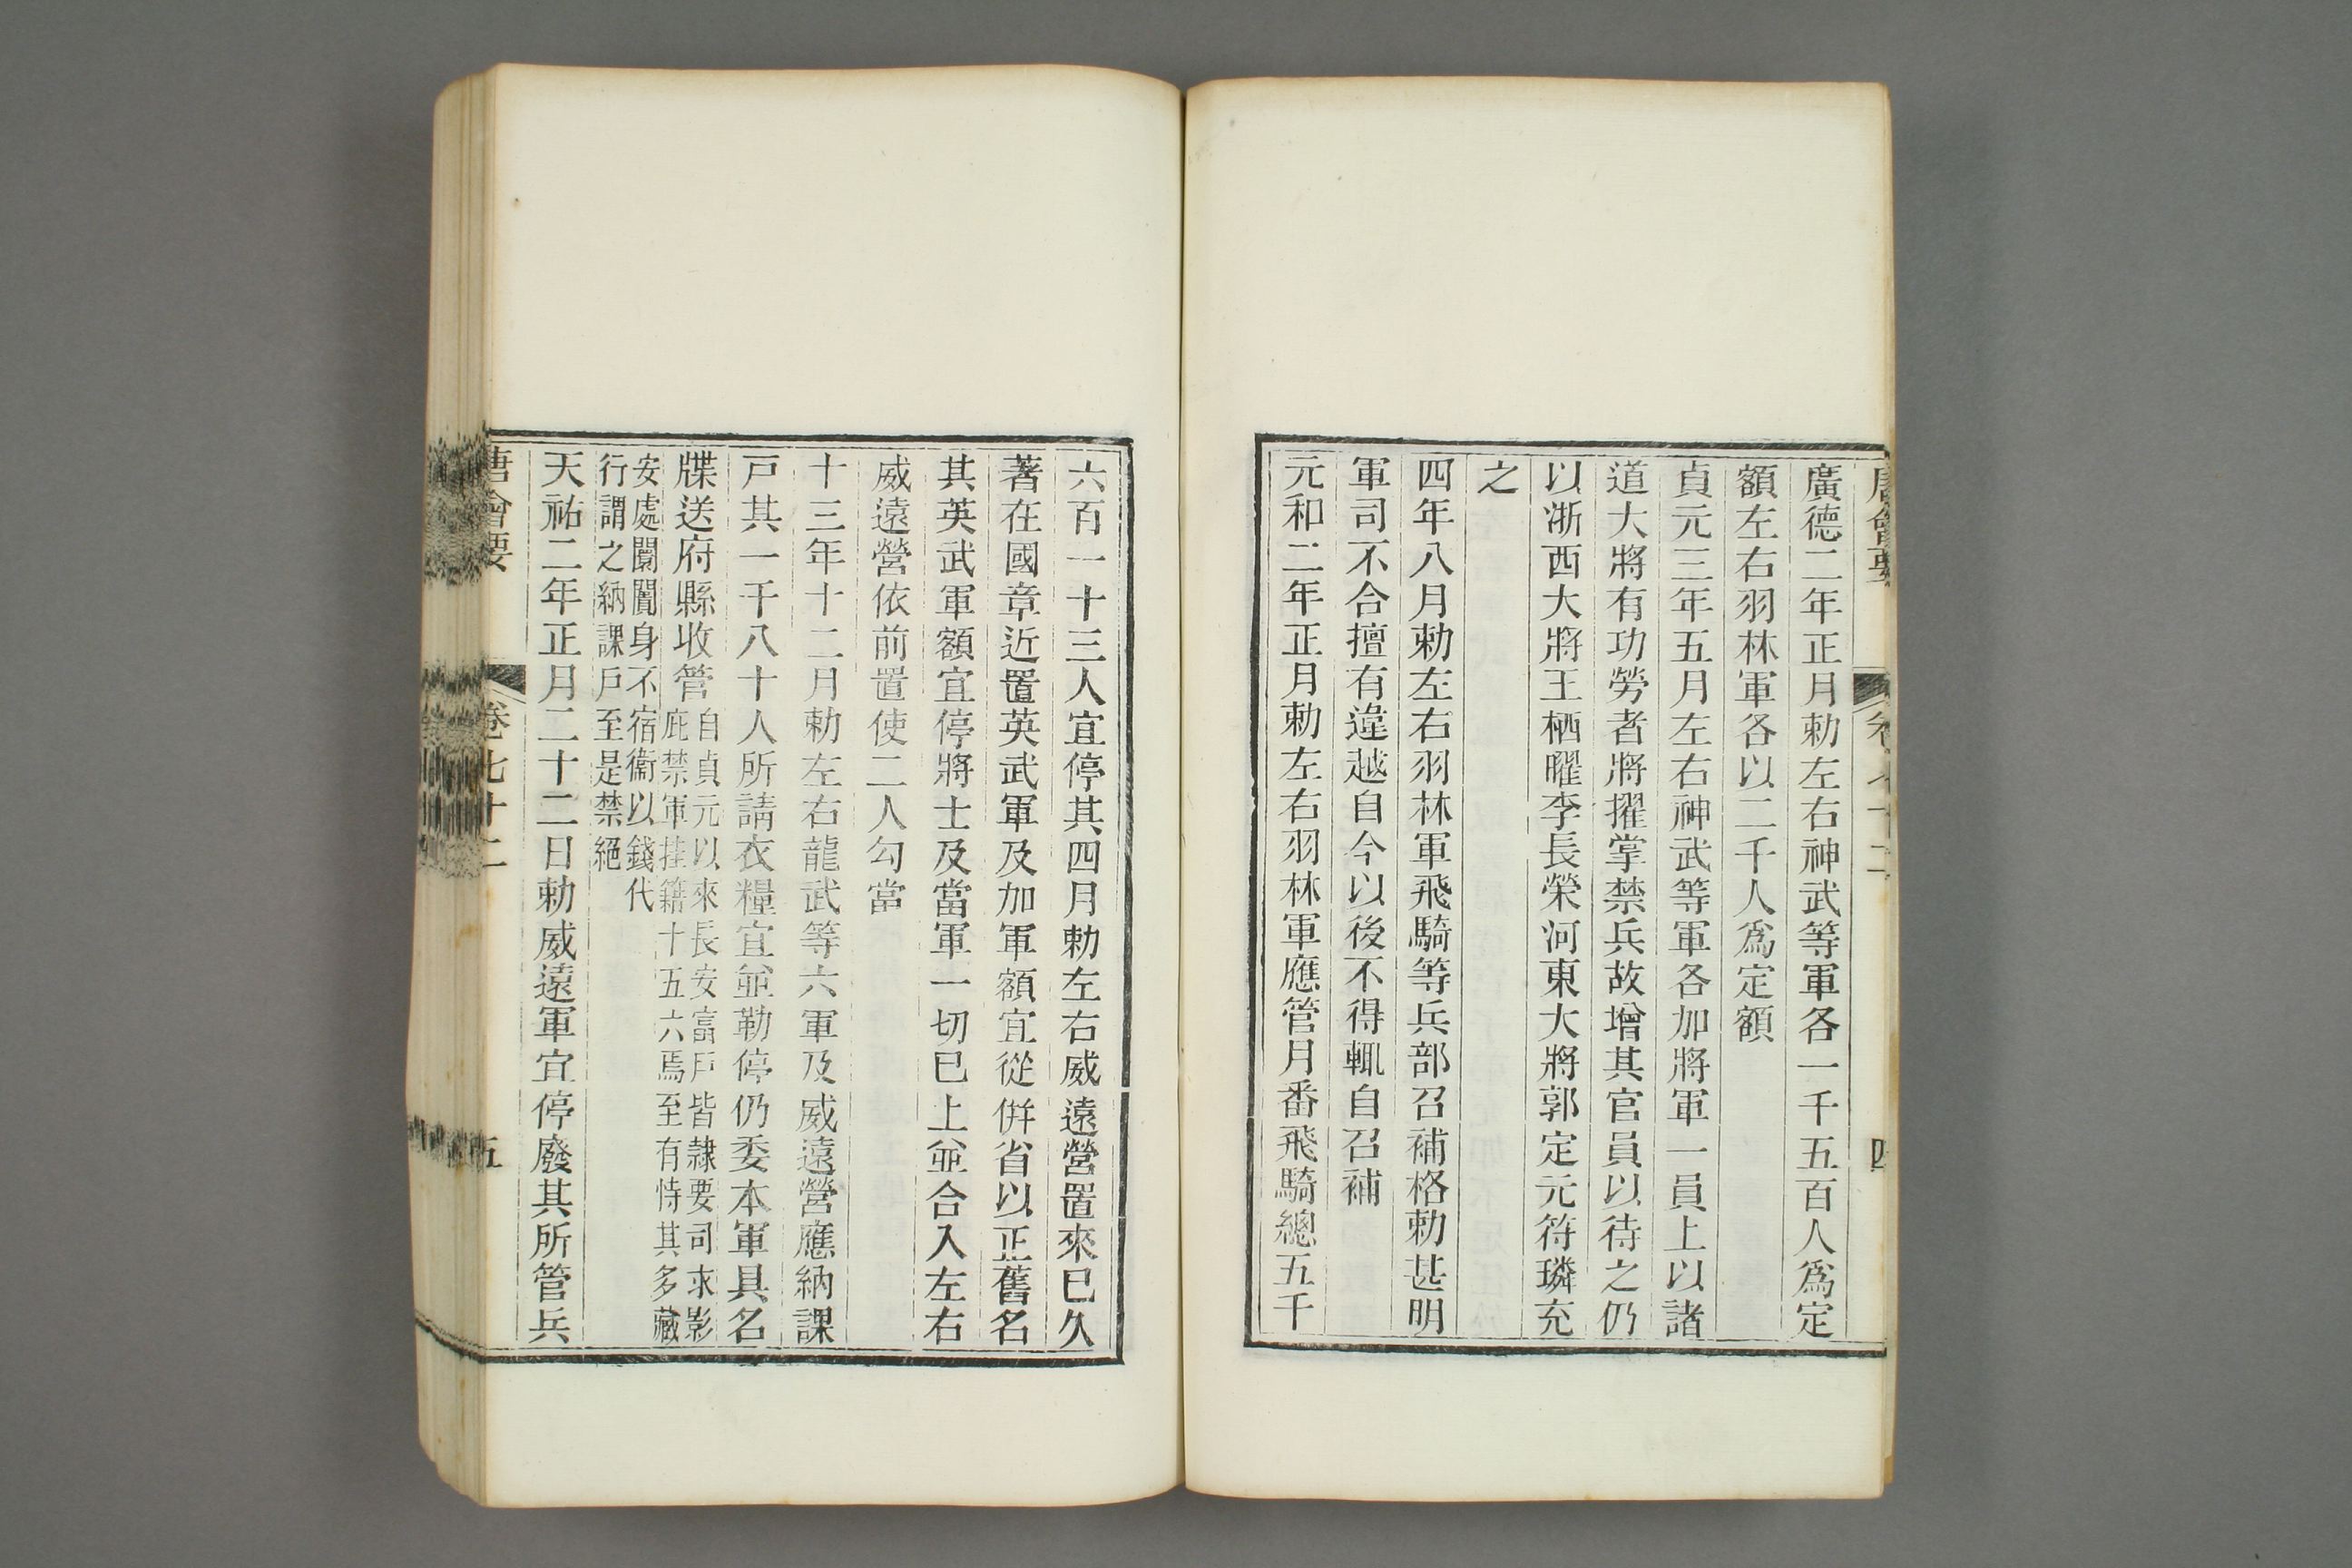 唐會要 卷七十二 四
廣德二年正月勅左右神武等軍各一千五百人爲定
額左右羽林軍各以二千人爲定額
貞元三年五月左右神武等軍各加將軍一員上以諸
道大將有功勞者將擢掌禁兵故增其官員以待之仍
以浙西大將王栖曜李長榮河東大將郭定元符璘充
之
四年八月勅左右羽林軍飛騎等兵部召補格勅甚明
軍司不合擅有違越自今以後不得輒自召補
元和二年正月勅左右羽林軍應管月番飛騎總五千
六百一十三人宜停其四月勅左右威遠營置來已久
著在國章近置英武軍及加軍額宜從併省以正舊名
其英武軍額宜停將士及當軍一切已上並合入左右
威遠營依前置使二人勾當
十三年十二月勅左右龍武等六軍及威遠營應納課
戸其一千八十人所請衣糧宜並勒停仍委本軍具名
牒送府縣收管自貞元以來長安富戸皆隷要司求影
庇禁軍挂籍十五六焉至有恃其多藏
安處闤闠身不宿衞以錢代
行謂之納課戸至是禁絕
天祐二年正月二十二日勅威遠軍宜停廢其所管兵
唐會要 卷七十二 五